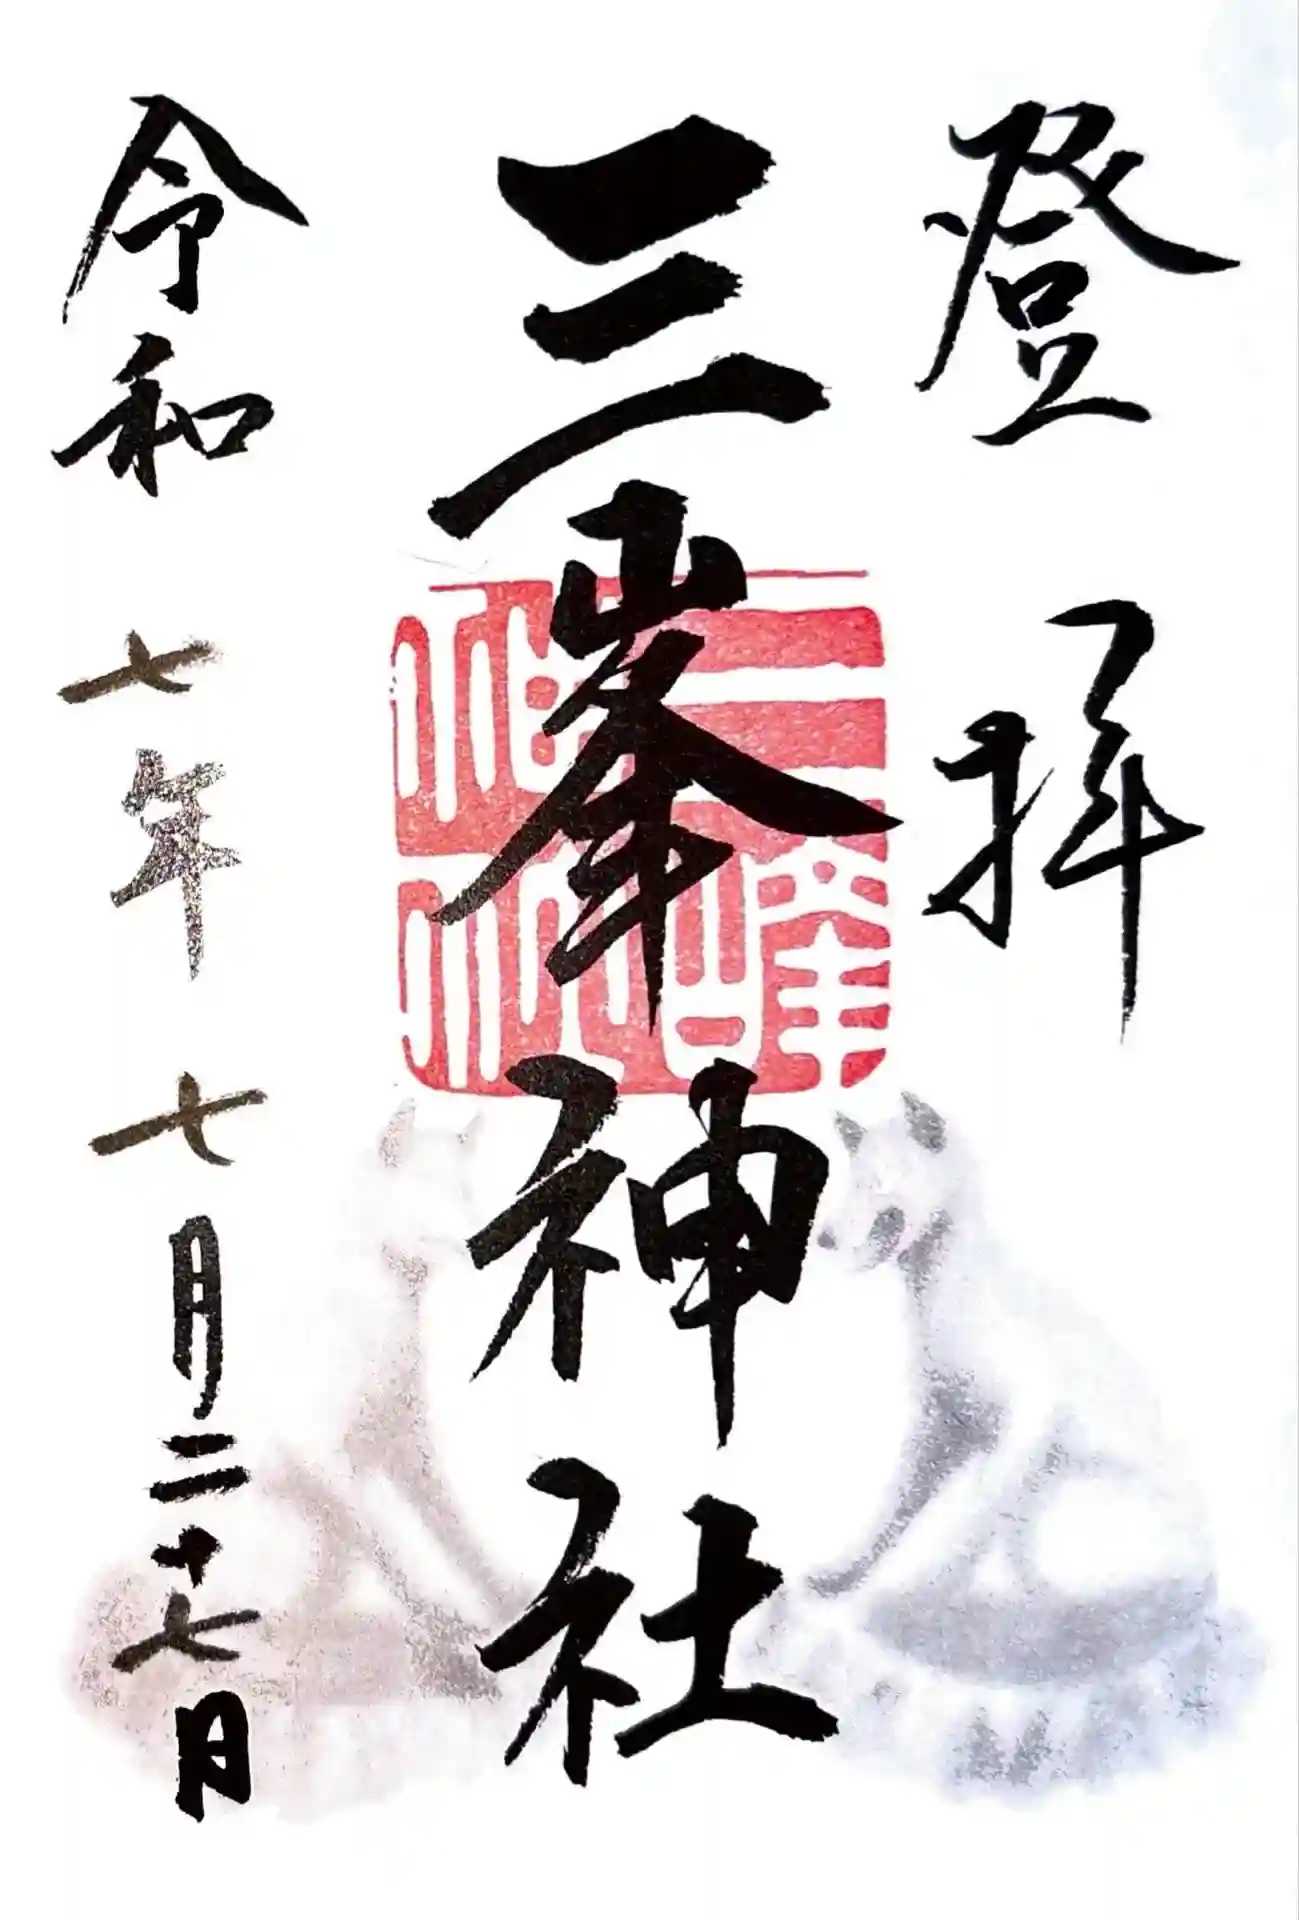 登拝
三峯神社
三峰神社
令和七年七月二十七日